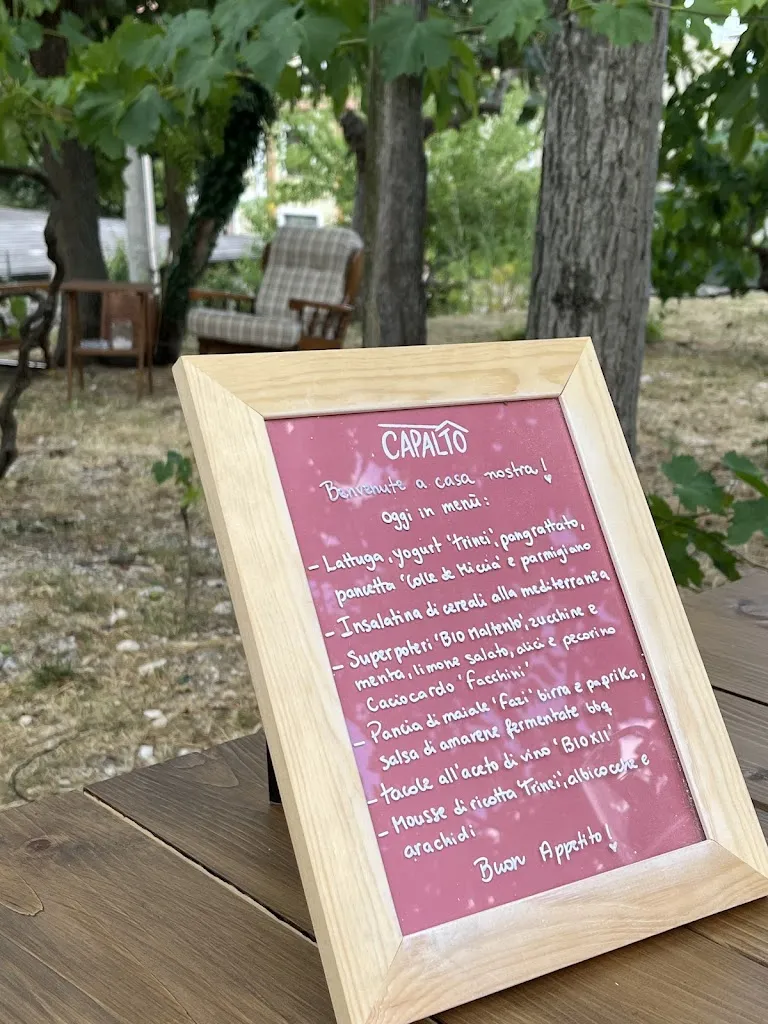 CAPALTO
Benvenute a casa nostra!
Oggi in menù:
- Lattuga, yogurt 'Trinei', pangrattato,
pancetta 'Colle de Miccià' e parmigiano
- Insalatina di cereali alla mediterranea
- Superpoteri 'BIO Maltento', zucchine e
menta, limone salato, alici e pecorino
Caciocardo 'Facchini'
- Pancia di maiale 'Fazi' birra e paprika,
salsa di amarene fermentate bbq
- tacole all'aceto di vino 'BIO XII'
- Mousse di ricotta 'Trinei', albicocche e
arachidi
Buon Appetito!